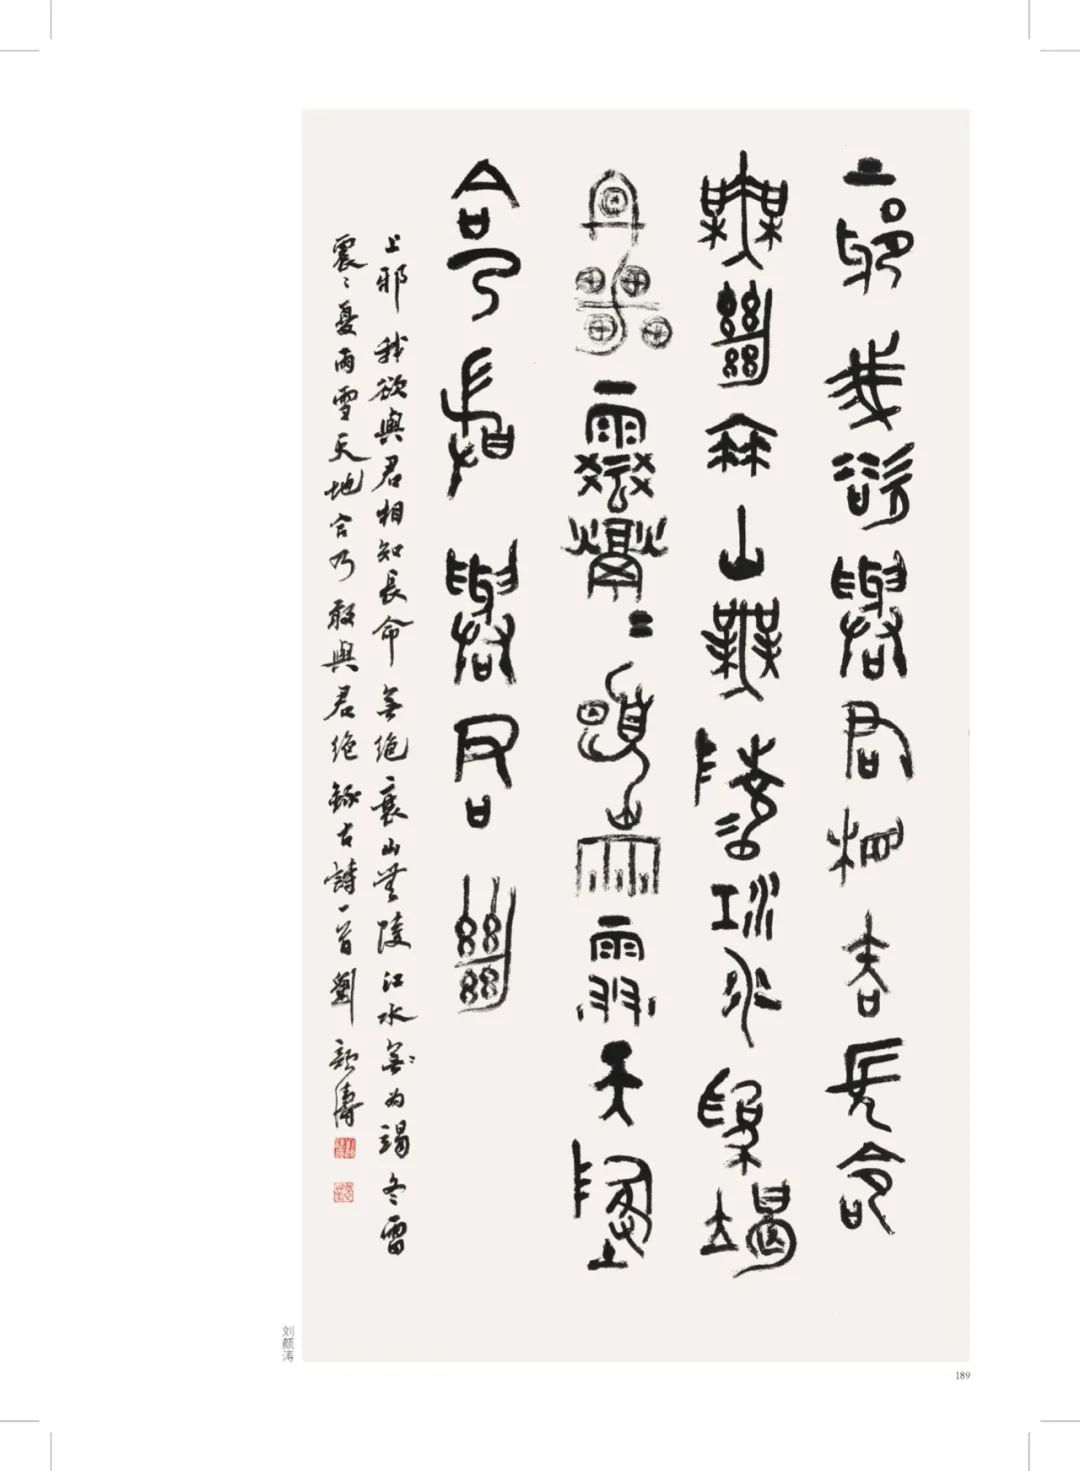 上邪我欲與君相知長命
無絕衰山無陵江水為竭
冬雷震〻夏雨雪天地
合乃敢與君絕
上邪 我欲與君相知長命 無絕衰山無陵江水無〻为竭冬雷
震〻夏雨雪天地合乃敢與君絕 錄古詩一首 劉顏濤
刘颜涛
189